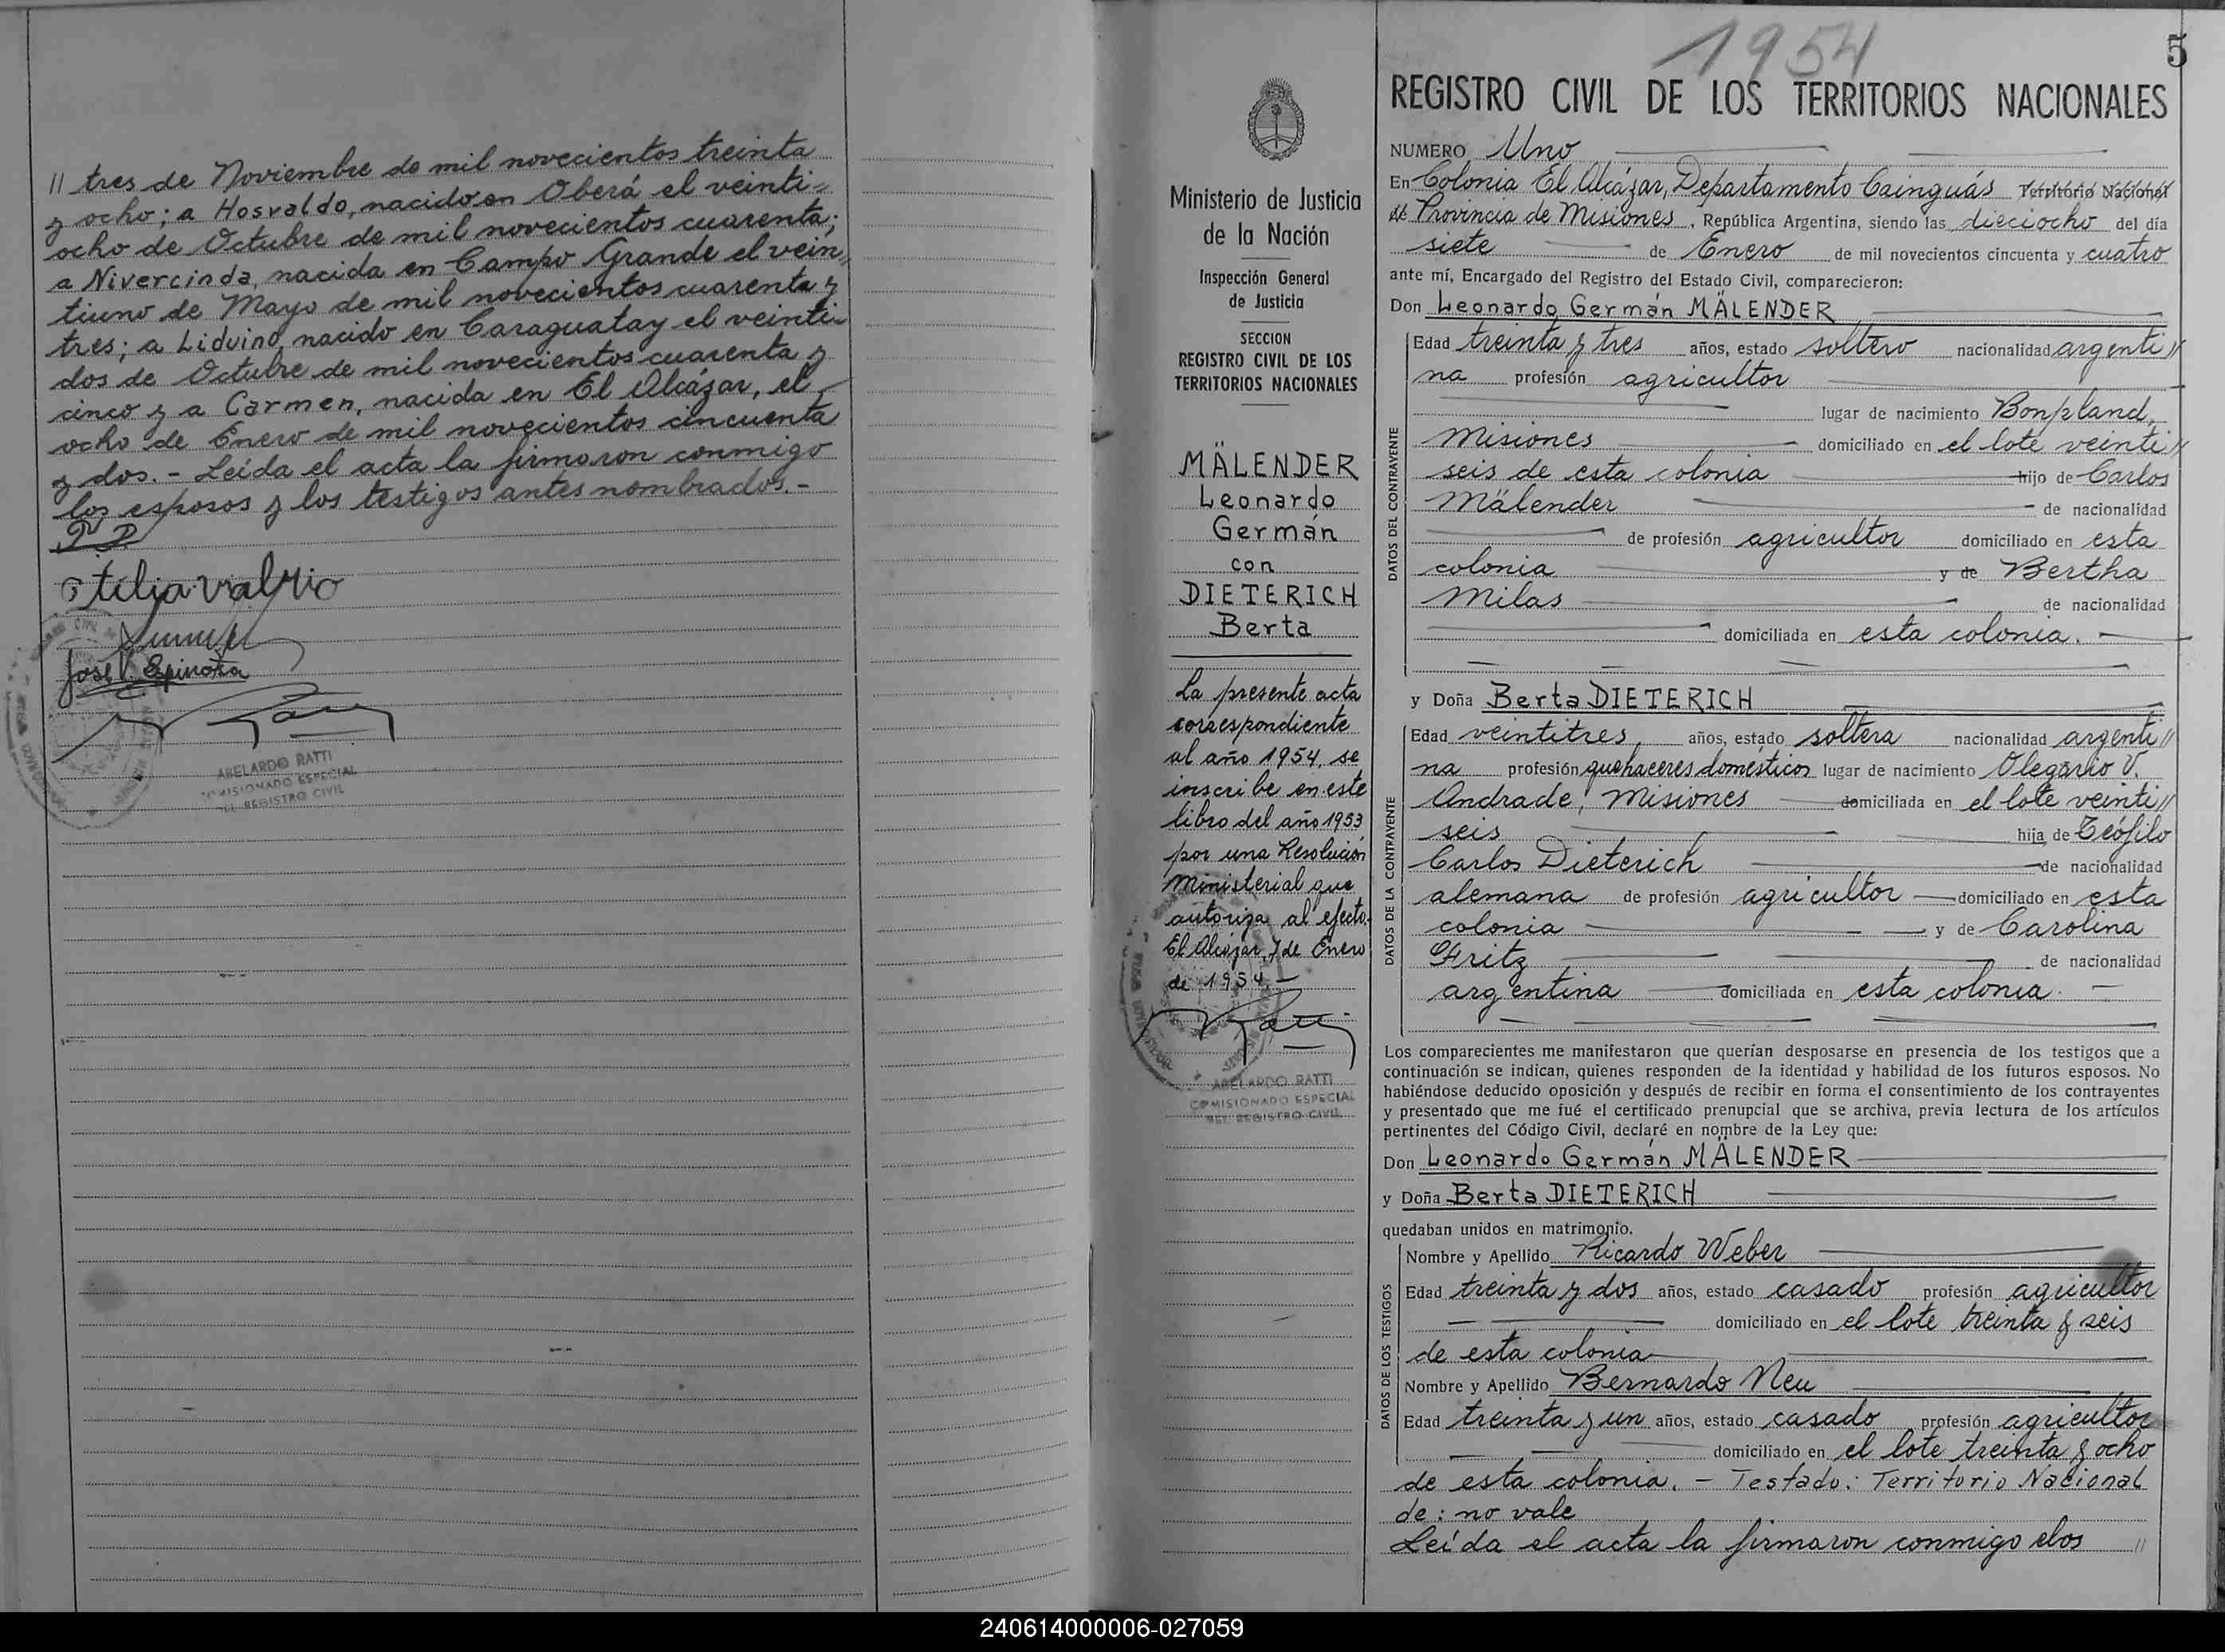 // tres de Noviembre de mil novecientos treinta
y ocho; a Hosvaldo, nacido en Oberá el veinti-
ocho de Octubre de mil novecientos cuarenta;
a Nivercinda, nacida en Campo Grande el vein//
tiuno de Mayo de mil novecientos cuarenta y
tres; a Liduino, nacido en Caraguatay el veinti-
dos de Octubre de mil novecientos cuarenta y
cinco y a Carmen, nacida en El Alcázar, el
ocho de Enero de mil novecientos cincuenta
y dos. - Leída el acta la firmaron conmigo
los esposos y los testigos antes nombrados. -
José V. Espinoza
ABELARDO RATTI
COMISIONADO ESPECIAL
DEL REGISTRO CIVIL
Ministerio de Justicia
de la Nación
Inspección General
de Justicia
SECCION
REGISTRO CIVIL DE LOS
TERRITORIOS NACIONALES
MÄLENDER
Leonardo
Germán
con
DIETERICH
Berta
La presente acta
correspondiente
al año 1954, se
inscribe en este
libro del año 1953
por una Resolución
Ministerial que
autoriza al efecto.
El Alcázar, 7 de Enero
de 1954. -
ABELARDO RATTI
COMISIONADO ESPECIAL
DEL REGISTRO CIVIL
1954
5
REGISTRO CIVIL DE LOS TERRITORIOS NACIONALES
NUMERO Uno
En Colonia El Alcázar, Departamento Cainguás Territorio Nacional
de Provincia de Misiones, República Argentina, siendo las dieciocho del día
siete de Enero de mil novecientos cincuenta y cuatro
ante mí, Encargado del Registro del Estado Civil, comparecieron:
Don Leonardo Germán MÄLENDER
DATOS DEL CONTRAYENTE
Edad treinta y tres años, estado soltero nacionalidad argenti//
na profesión agricultor
lugar de nacimiento Bonpland,
Misiones domiciliado en el lote veinti//
seis de esta colonia hijo de Carlos
Mälender de nacionalidad
de profesión agricultor domiciliado en esta
colonia y de Bertha
Milas de nacionalidad
domiciliada en esta colonia.
y Doña Berta DIETERICH
DATOS DE LA CONTRAYENTE
Edad veintitres años, estado soltera nacionalidad argenti//
na profesión quehaceres domésticos lugar de nacimiento Olegario V.
Andrade, Misiones domiciliada en el lote veinti//
seis hija de Teófilo
Carlos Dieterich de nacionalidad
alemana de profesión agricultor domiciliado en esta
colonia y de Carolina
Fritz de nacionalidad
argentina domiciliada en esta colonia.
Los comparecientes me manifestaron que querían desposarse en presencia de los testigos que a
continuación se indican, quienes responden de la identidad y habilidad de los futuros esposos. No
habiéndose deducido oposición y después de recibir en forma el consentimiento de los contrayentes
y presentado que me fué el certificado prenupcial que se archiva, previa lectura de los artículos
pertinentes del Código Civil, declaré en nombre de la Ley que:
Don Leonardo Germán MÄLENDER
y Doña Berta DIETERICH
quedaban unidos en matrimonio.
DATOS DE LOS TESTIGOS
Nombre y Apellido Ricardo Weber
Edad treinta y dos años, estado casado profesión agricultor
domiciliado en el lote treinta y seis
de esta colonia
Nombre y Apellido Bernardo Neu
Edad treinta y un años, estado casado profesión agricultor
domiciliado en el lote treinta y ocho
de esta colonia. - Testado: Territorio Nacional
de: no vale
Leída el acta la firmaron conmigo elos //
240614000006-027059